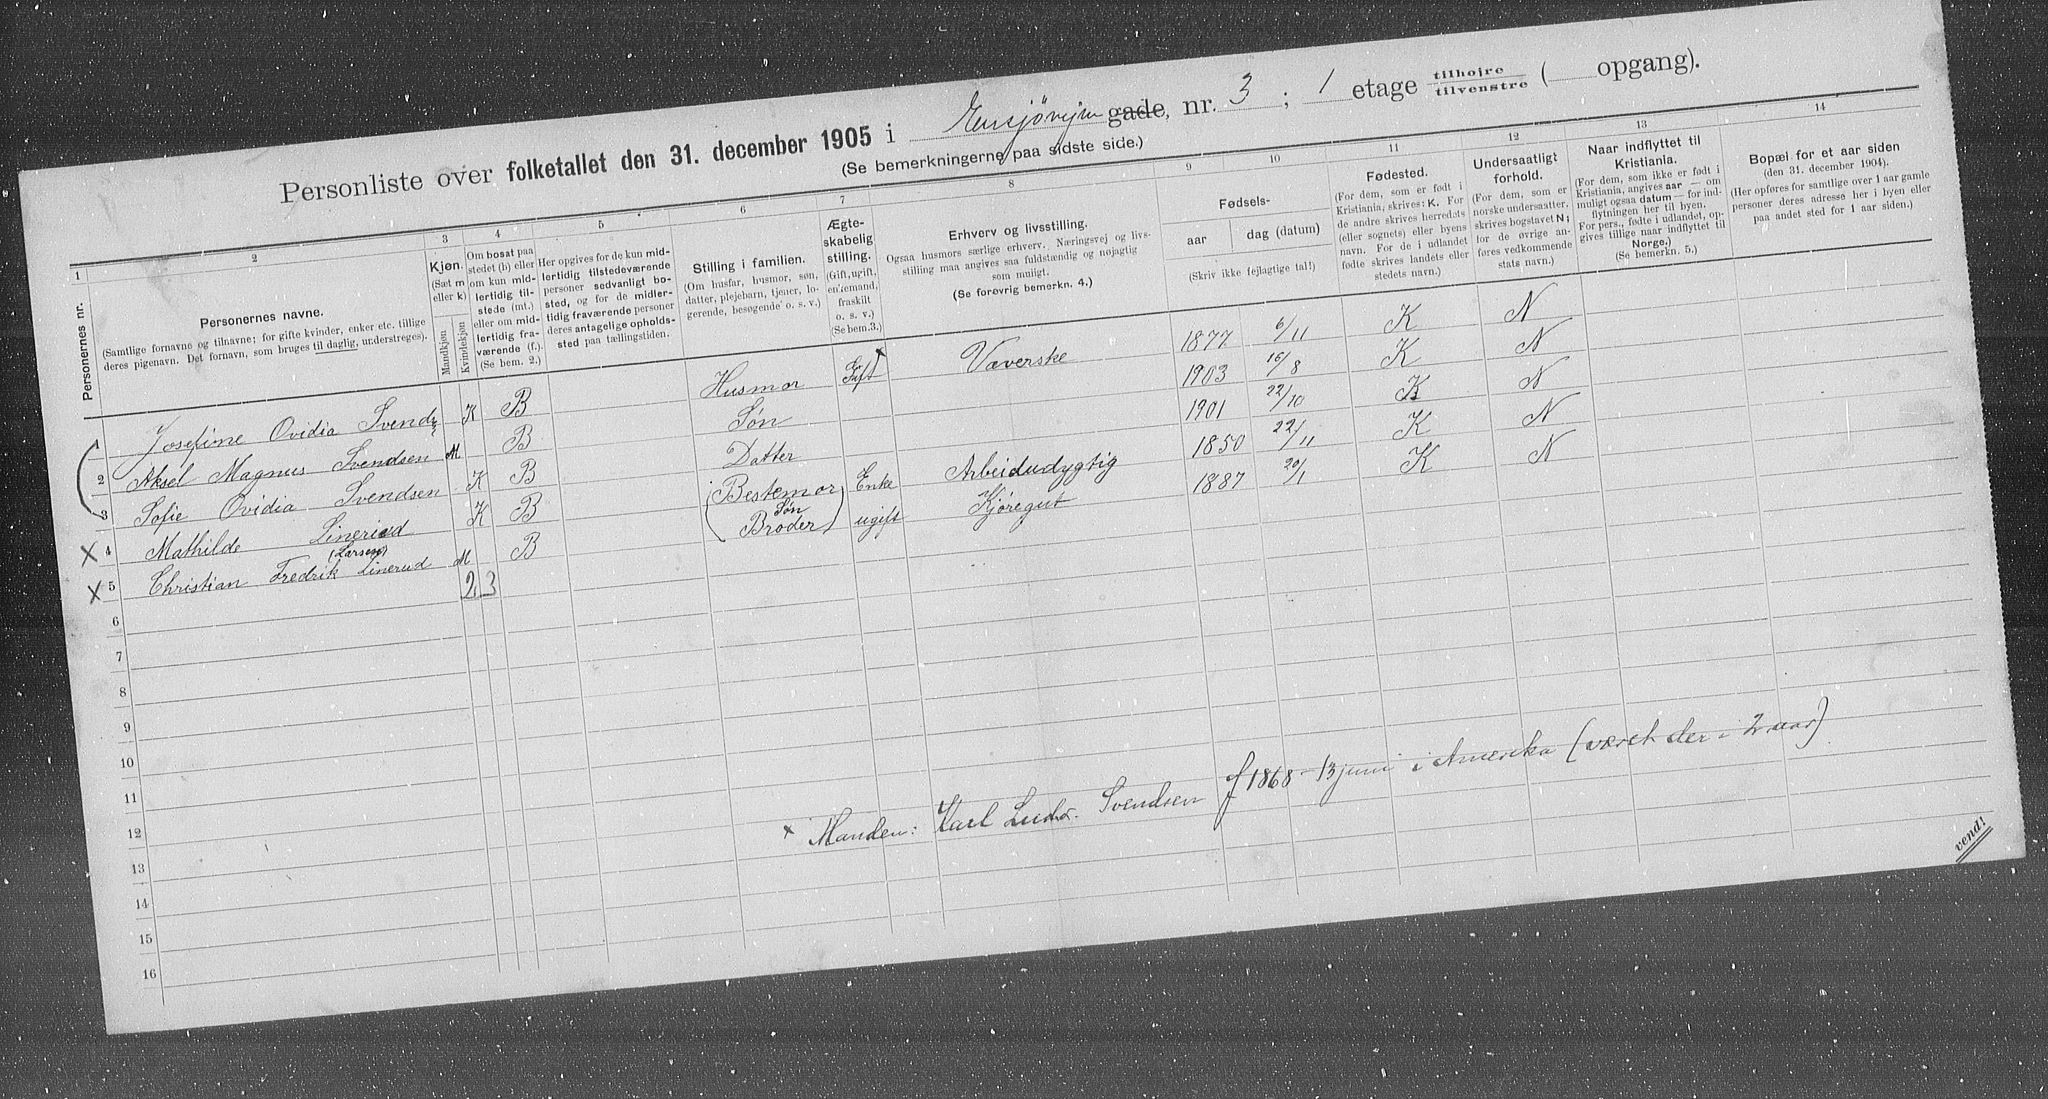 Personliste over folketallet den 31. december 1905 i Ensjøveien gade, nr. 3 ; 1 etage tilhøjre tilvenstre ( opgang).
(Se bemerkningerne paa sidste side.)
1 2 3 4 5 6 7 8 9 10 11 12 13 14
Personernes nr.
Personernes navne.
(Samtlige fornavne og tilnavne; for gifte kvinder, enker etc. tillige
deres pigenavn. Det fornavn, som bruges til daglig, understreges).
Kjøn.
(Sæt m
eller k)
Mandkjøn
Kvindekjøn
Om bosat paa
stedet (b) eller
om kun mid-
lertidig til-
stede (mt.)
eller om mid-
lertidig fra-
værende (f.).
(Se bem. 2.)
Her opgives for de kun mid-
lertidig tilstedeværende
personer sedvanligt bo-
sted, og for de midler-
tidig fraværende personer
deres antagelige opholds-
sted paa tællingstiden.
Stilling i familien.
(Om husfar, husmor, søn,
datter, plejebarn, tjener, lo-
gerende, besøgende o. s. v.)
Ægte-
skabelig
stilling.
(Gift, ugift,
enkemand,
fraskilt
o. s. v.)
(Se bem.3.)
Erhverv og livsstilling.
Ogsaa husmors særlige erhverv. Næringsvej og livs-
stilling maa angives saa fuldstændig og nøjagtig
som muligt.
(Se forøvrig bemerkn. 4.)
Fødsels-
aar
dag (datum)
(Skriv ikke fejlagtige tal!)
Fødested.
(For dem, som er født i
Kristiania, skrives: K. For
de andre skrives herredets
(eller sognets) eller byens
navn. For de i udlandet
fødte skrives landets eller
stedets navn.)
Undersaatligt
forhold.
(For dem, som er
norske undersaatter,
skrives bogstavet N;
for de øvrige an-
føres vedkommende
stats navn).
Naar indflyttet til
Kristiania.
(For dem, som ikke er født i
Kristiania, angives aar — om
muligt ogsaa datum — for ind-
flytningen her til byen.
For pers., fødte i udlandet, op-
gives tillige naar indflyttet til
Norge,)
(Se bemerkn. 5.)
Bopæl for et aar siden
(den 31. december 1904).
(Her opføres for samtlige over 1 aar gamle
personer deres adresse her i byen eller
paa andet sted for 1 aar siden.)
1 Josefine Ovidia Svends K B Husmor Gift × Væverske 1877 6/11 K N
2 Aksel Magnus Svendsen M B Søn 1903 16/8 K N
3 Sofie Ovidia Svendsen K B Datter 1901 22/10 K N
× 4 Mathilde Linerud K B (Bestemor) Enke Arbeidudygtig 1850 22/11 K N
× 5 Christian Fredrik (Larsen) Linerud M B (Søn Broder) ugift Kjøregut 1887 20/1 K N
2 3
6
7
8
9
10
11
12
13
14
15
16
× Manden: Karl Ludv. Svendsen f 1868 - 13 juni i Amerika (været der i 2 aar)
vend!